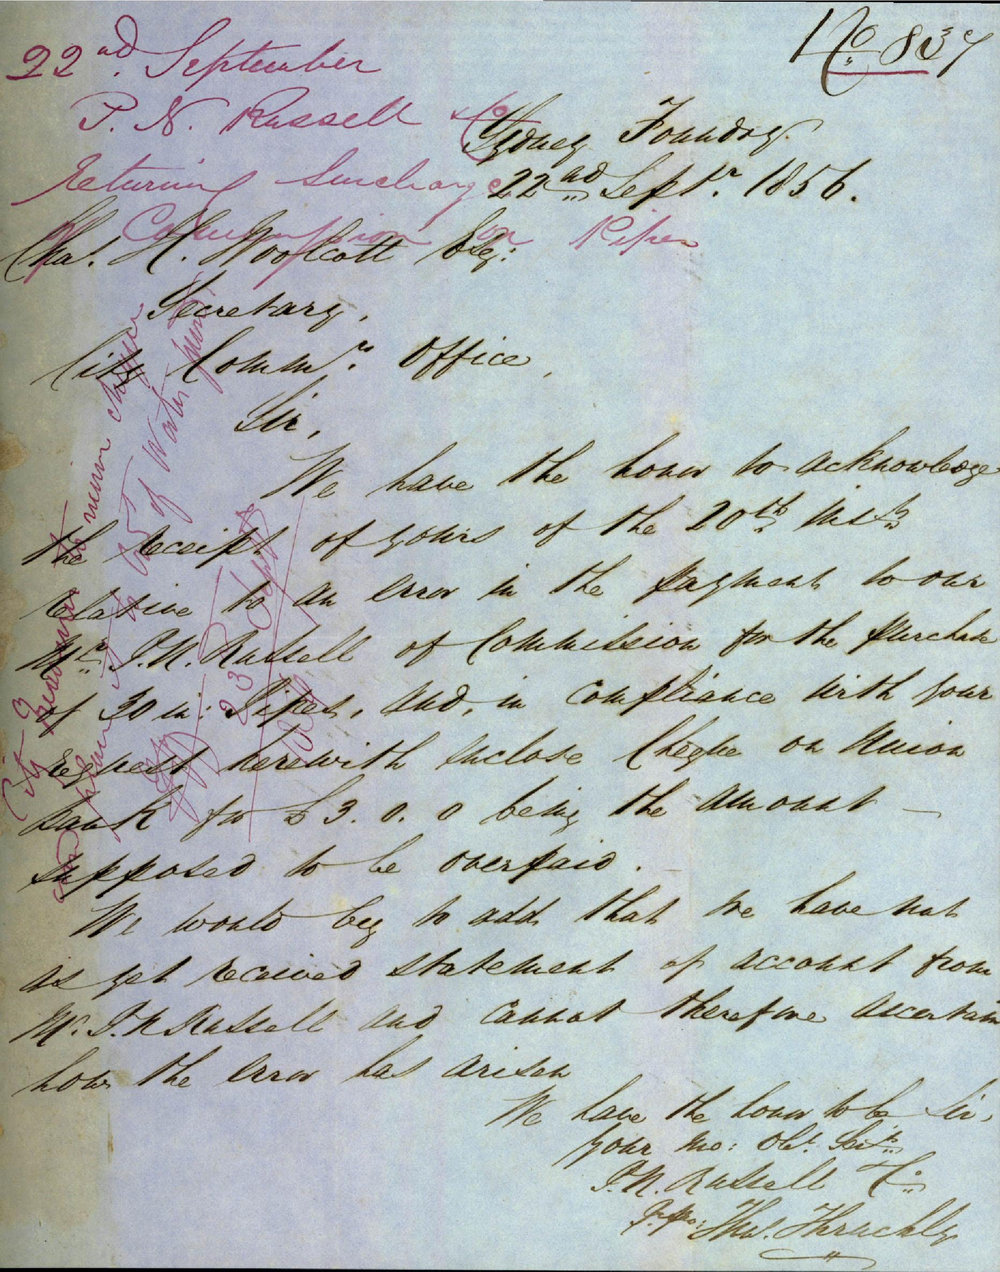 No 837
22nd September
P. N. Russell & Co
Returning Surcharge
of Commission on Pipes
Sydney Foundry
22nd Septr. 1856.
Chas. H. Woolcott Esq:
Secretary,
City Commrs. Office,
Sir,
We have the honor to acknowledge
the receipt of yours of the 20th Inst
relative to an error in the payment to our
Mr. P. N. Russell of Commission for the purchase
of 30 in: Pipes, and, in compliance with your
request herewith enclose Cheque on Union
Bank for £3.0.0 being the amount
supposed to be overpaid.
We would beg to add that we have not
as yet received statement of account from
Mr. P. N Russell and cannot therefore ascertain
how the error has arisen
We have the honor to be Sir,
Your mo: Obt. Servts
P. N. Russell & Co
Thos.
City Treasurer to
and to of Water fund
23 Septr